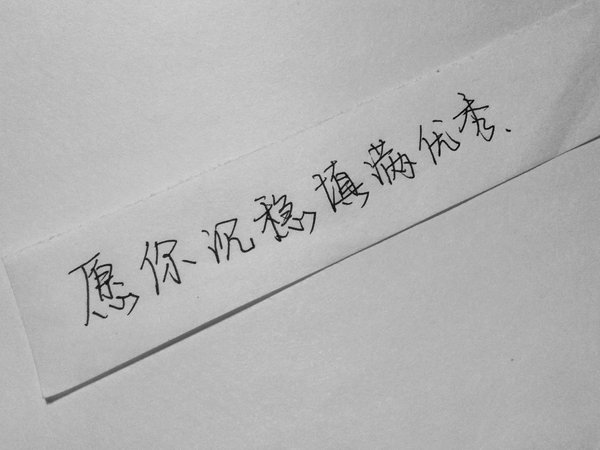 愿你沉稳填满优秀、